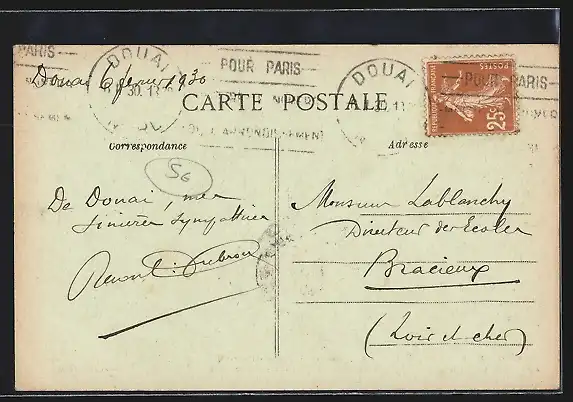 PARIS
DOUAI
POUR PARIS
DOUAI
POUR PARIS
POSTES
25c
Douai 6 février 1930
30. 13
CARTE POSTALE
Correspondance
Adresse
56
De Douai, mes
sincères sympathies
Monsieur Lablanchy
Directeur des Ecoles
Bracieux
(Loir et cher)